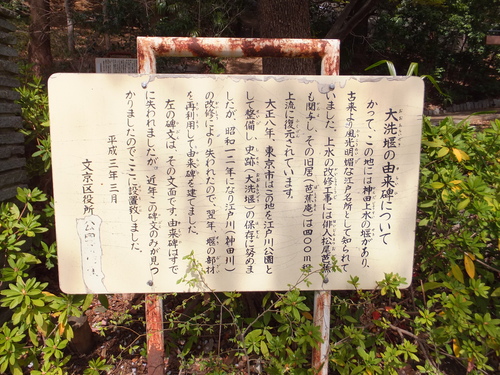 大洗堰の由来碑について
かつて、この地には神田上水の堰があり、
古来より風光明媚な江戸名所として知られて
いました。上水の改修工事には俳人松尾芭蕉
も関与し、その旧居(芭蕉庵)は四〇〇m程
上流に復元されています。
大正八年、東京市はこの地を江戸川公園と
して整備し、史跡(大洗堰)の保存に努めま
したが、昭和一二年になり江戸川(神田川)
の改修により失われたので、翌年、堰の部材
を再利用して由来碑を建てました。
左の碑文は、その文面です。由来碑はすで
に失われましたが、近年この碑文のみが見つ
かりましたのでここに設置致しました。
平成三年三月
文京区役所